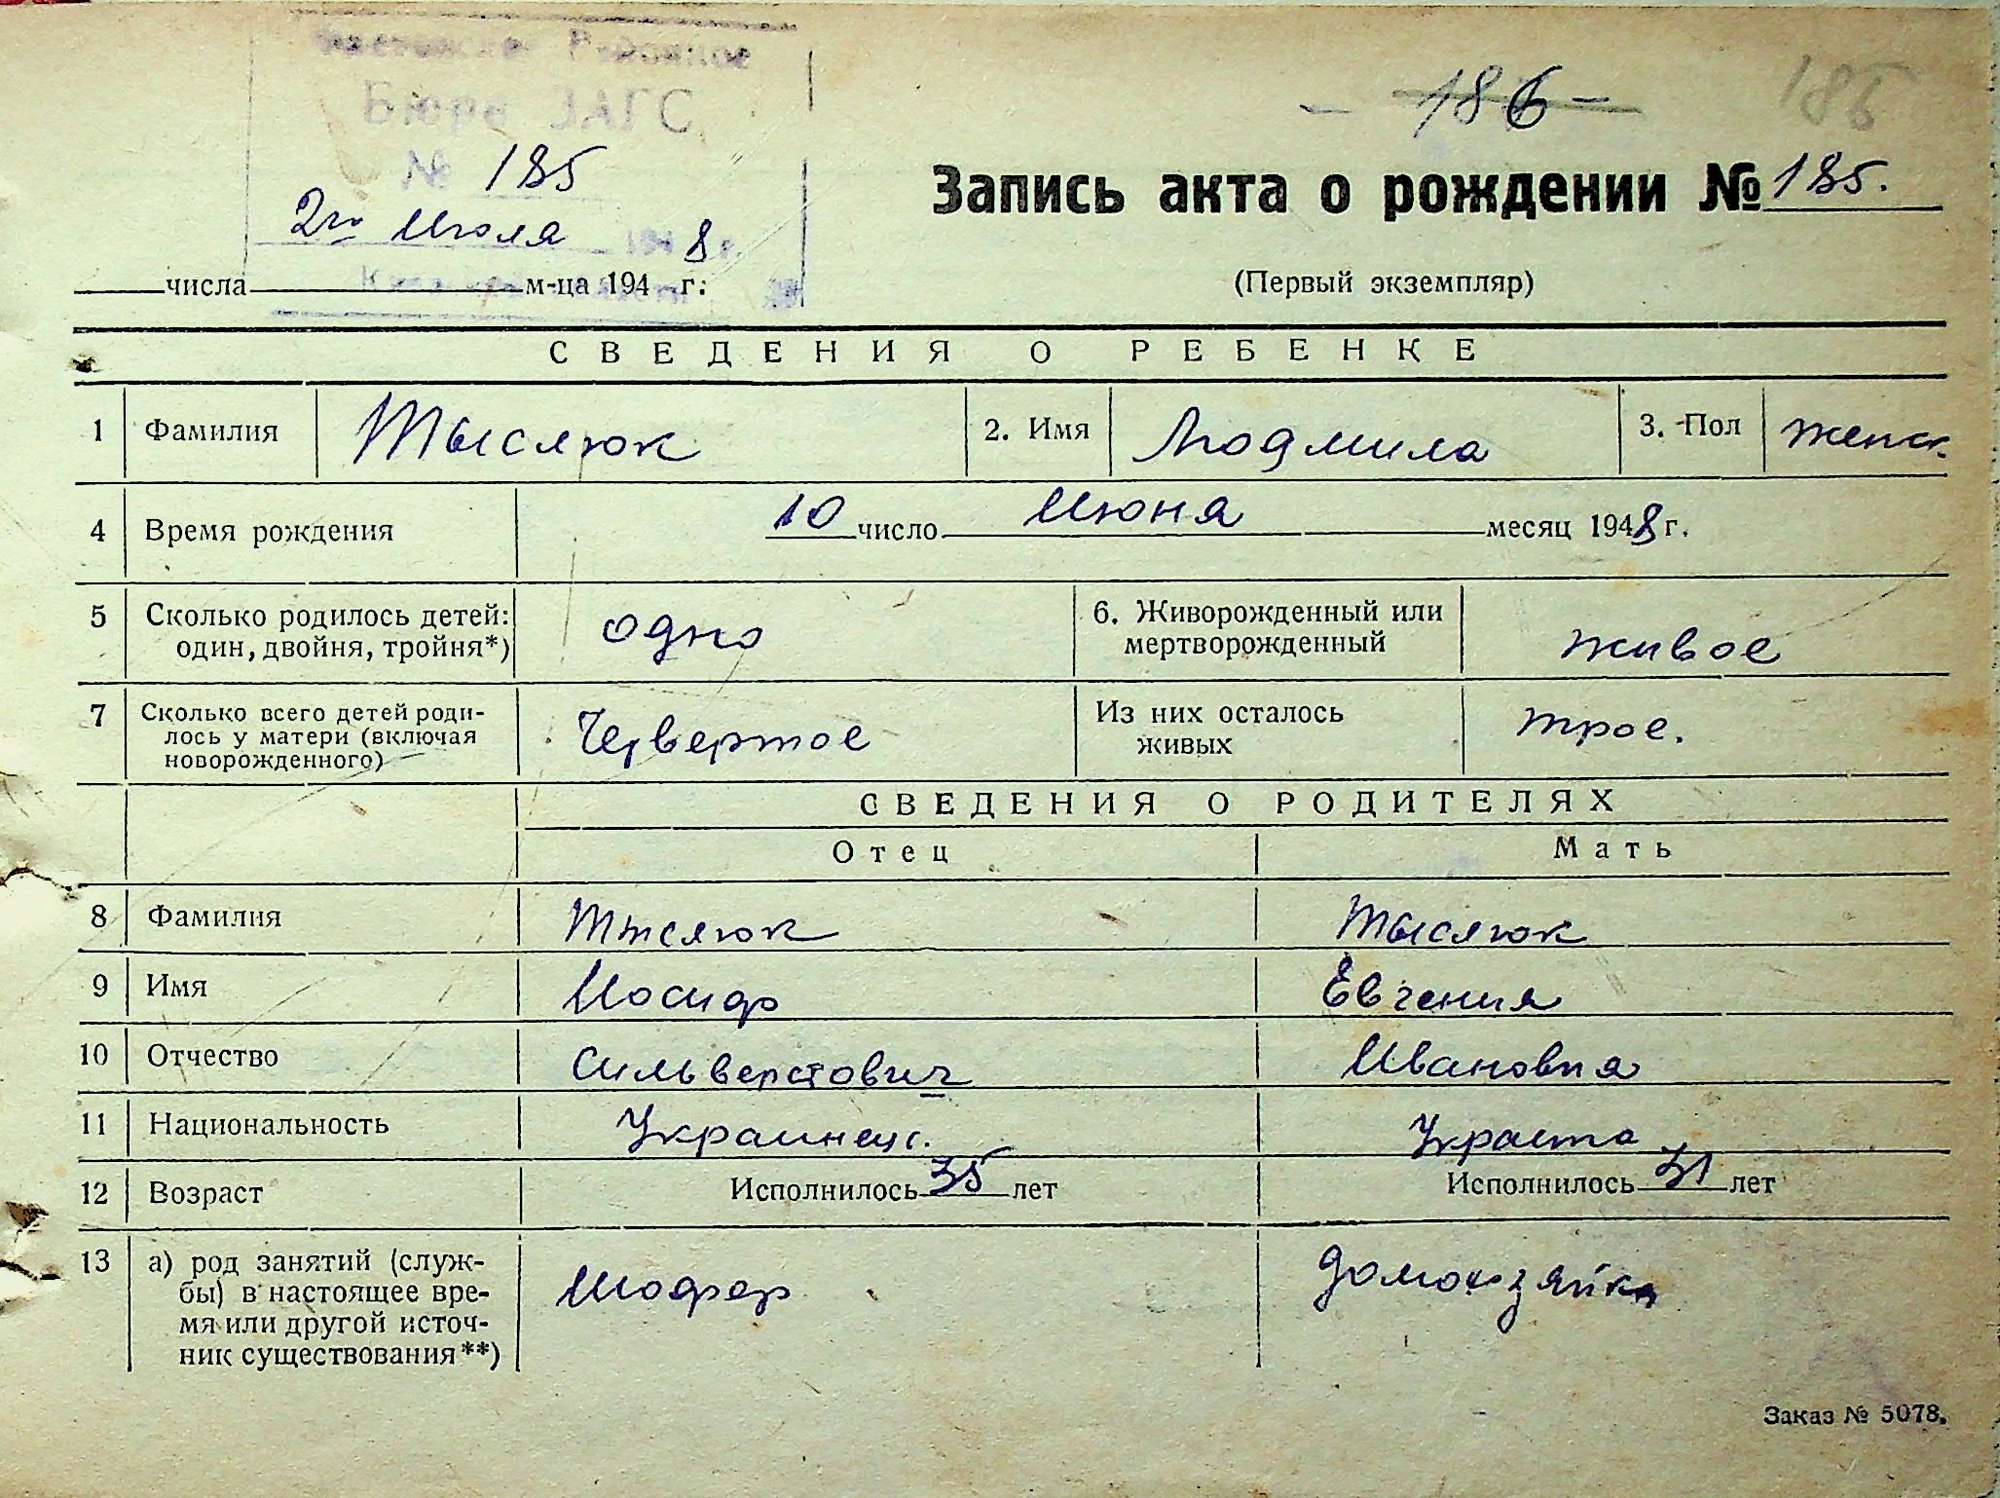 Районное
Бюро ЗАГС
№ 185
2го Июля 1948 г.
числа м-ца 194 г.
186
186
Запись акта о рождении № 185.
(Первый экземпляр)
СВЕДЕНИЯ О РЕБЕНКЕ
1 Фамилия Тыслюк 2. Имя Людмила 3. Пол женск.
4 Время рождения 10 число Июня месяц 1948 г.
5 Сколько родилось детей: одно 6. Живорожденный или живое
один, двойня, тройня*) мертворожденный
7 Сколько всего детей роди- Червертое Из них осталось трое.
лось у матери (включая живых
новорожденного)
СВЕДЕНИЯ О РОДИТЕЛЯХ
Отец Мать
8 Фамилия Тыслюк Тыслюк
9 Имя Иосиф Евгения
10 Отчество Сильверстович Ивановна
11 Национальность Украинец.
12 Возраст Исполнилось 35 лет Исполнилось 31 лет
13 а) род занятий (служ- Шофер домохозяйка
бы) в настоящее вре-
мя или другой источ-
ник существования**)
Заказ № 5078.